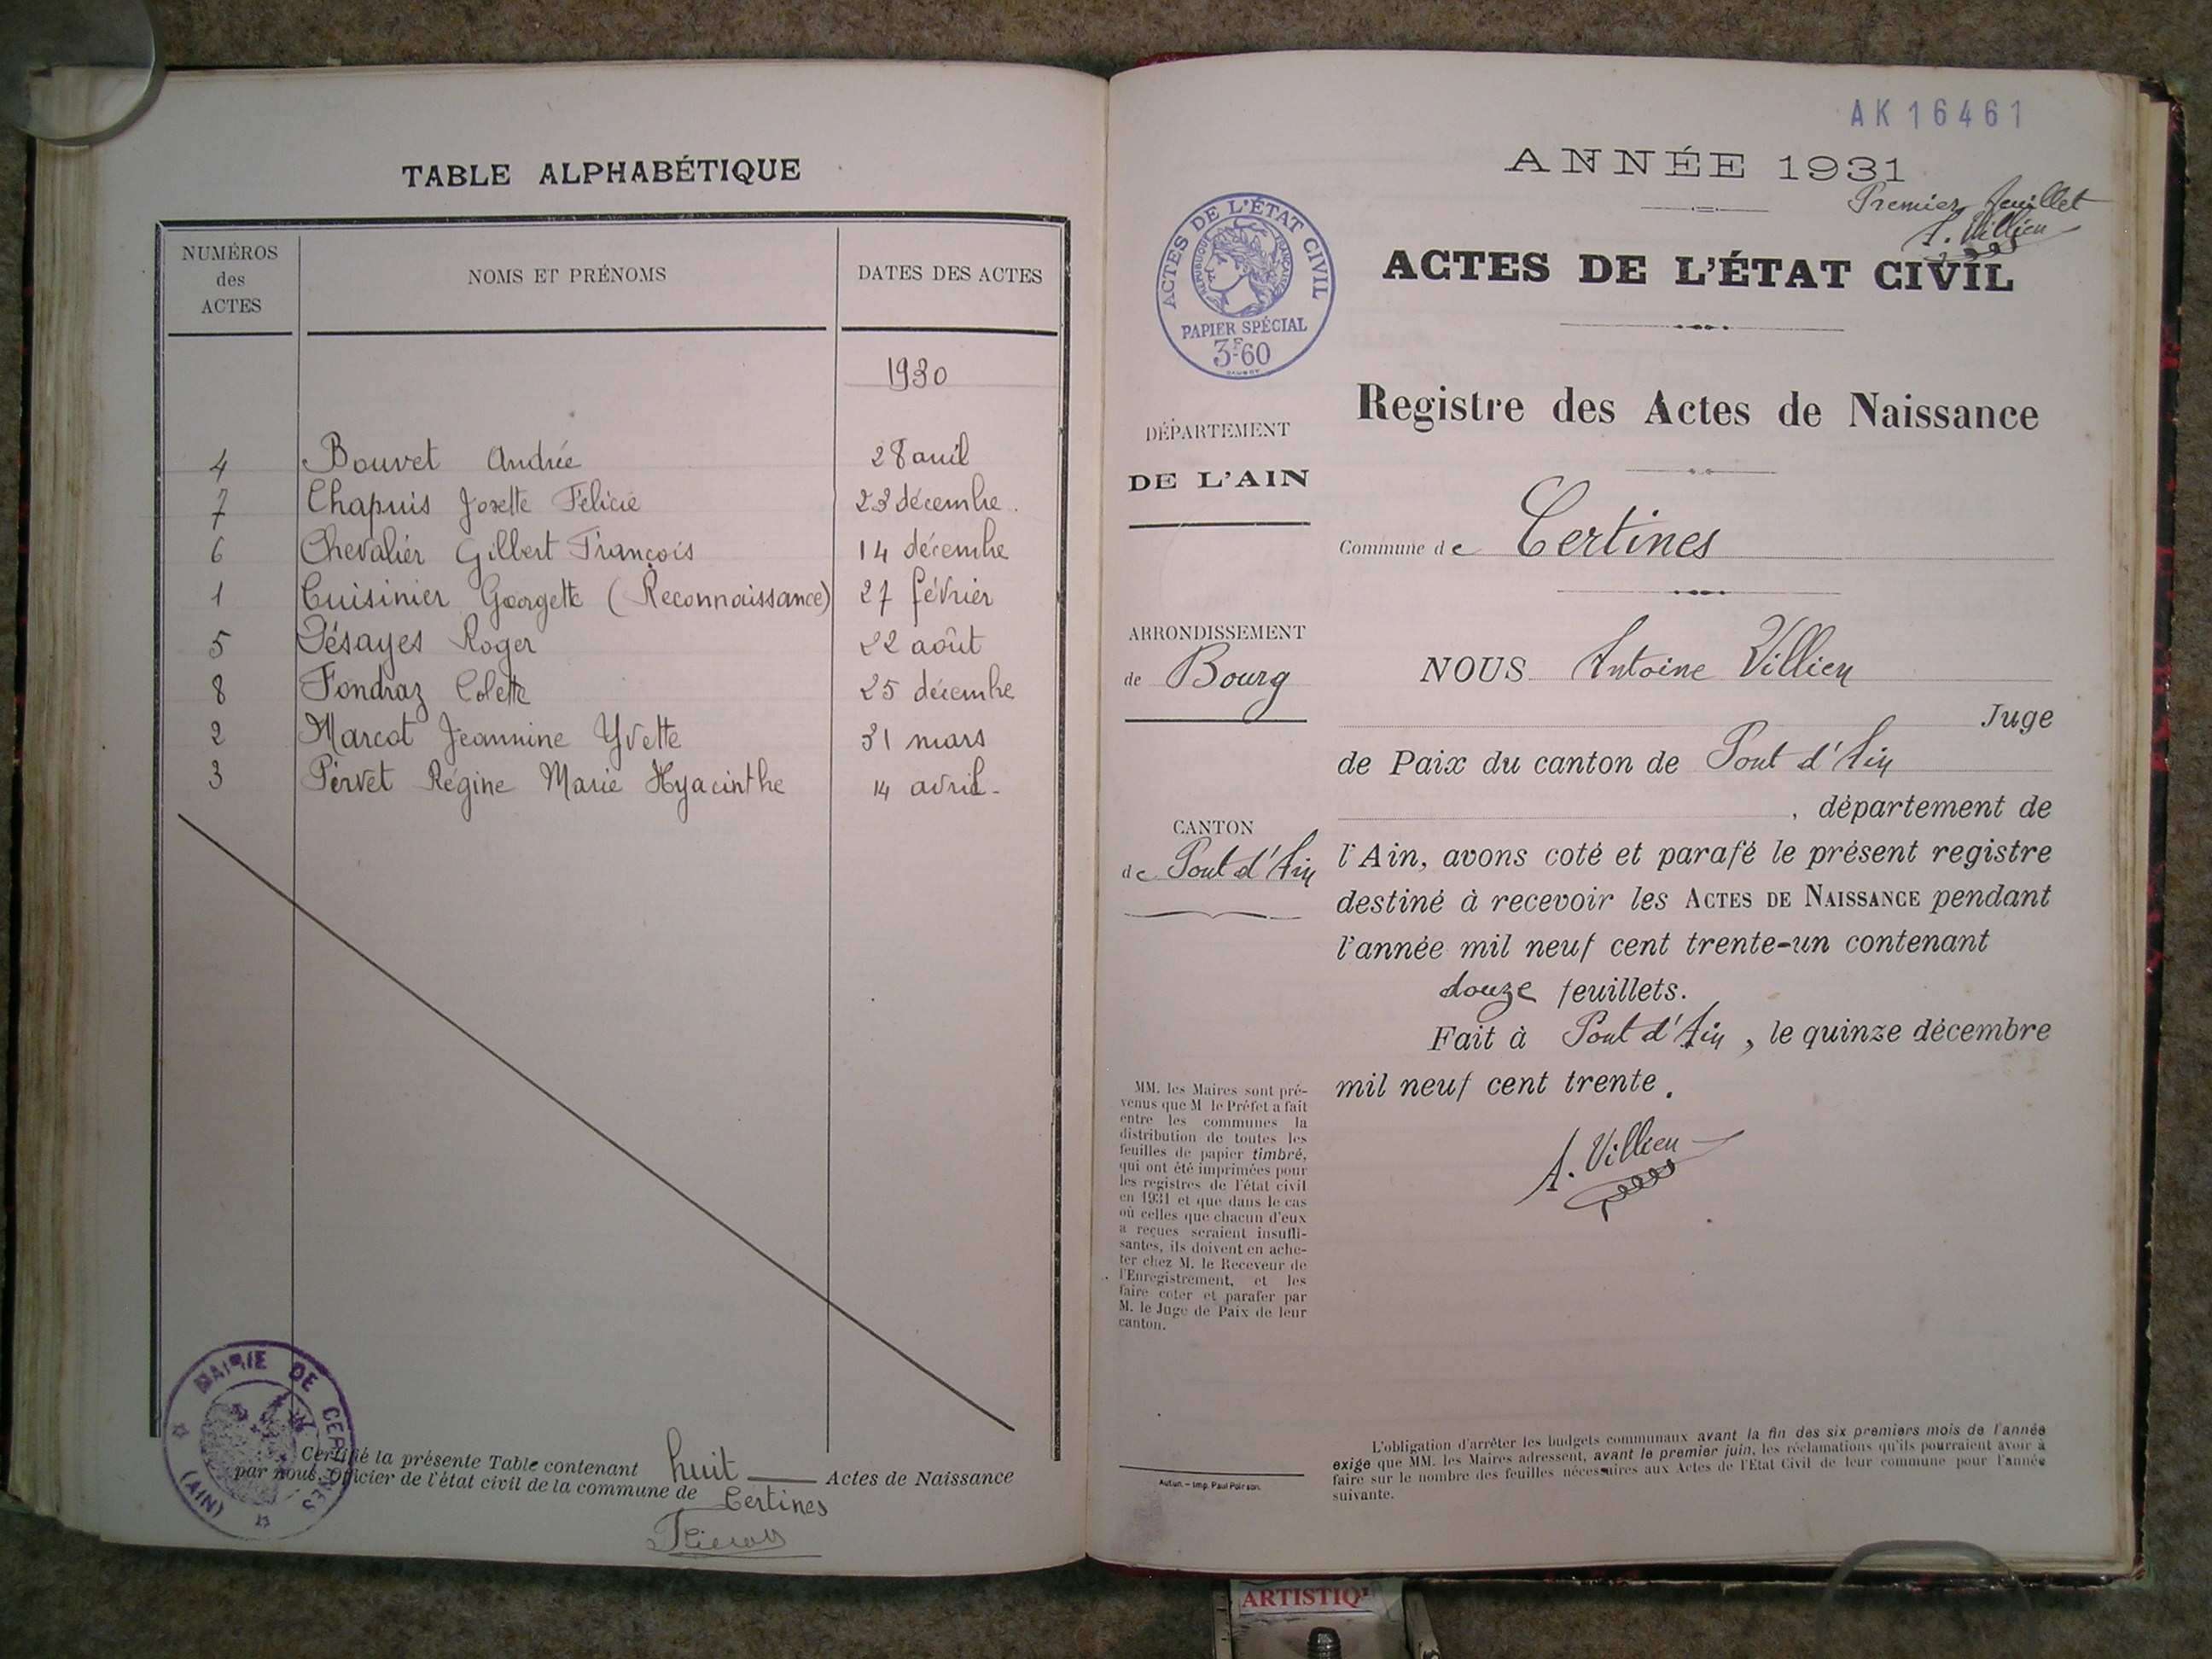 TABLE ALPHABÉTIQUE
NUMÉROS des ACTES
NOMS ET PRÉNOMS
DATES DES ACTES
1930
4 Bouvet Andrée 28 avril
7 Chapuis Josette Félicie 23 décembre.
6 Chevalier Gilbert François 14 décembre
1 Cuisinier Georgette (Reconnaissance) 27 février
5 Désayes Roger 22 août
8 Fondraz Colette 25 décembre
2 Marcot Jeannine Yvette 31 mars
3 Pervet Régine Marie Hyacinthe 14 avril-
MAIRIE DE CERTINES
(AIN)
Certifié la présente Table contenant huit Actes de Naissance
par nous, Officier de l'état civil de la commune de Certines
AK 16461
ANNÉE 1931
Premier feuillet
A. Villien
ACTES DE L'ÉTAT CIVIL
ACTES DE L'ÉTAT CIVIL
RÉPUBLIQUE FRANÇAISE
PAPIER SPÉCIAL
3F60
Registre des Actes de Naissance
DÉPARTEMENT
DE L'AIN
Commune de Certines
ARRONDISSEMENT
de Bourg
CANTON
de Pont d'Ain
NOUS Antoine Villien
Juge
de Paix du canton de Pont d'Ain
, département de
l'Ain, avons coté et parafé le présent registre
destiné à recevoir les ACTES DE NAISSANCE pendant
l'année mil neuf cent trente-un contenant
douze feuillets.
Fait à Pont d'Ain, le quinze décembre
mil neuf cent trente.
A. Villien
MM. les Maires sont pré-
venus que M le Préfet a fait
entre les communes la
distribution de toutes les
feuilles de papier timbré,
qui ont été imprimées pour
les registres de l'état civil
en 1931 et que dans le cas
où celles que chacun d'eux
a reçues seraient insuffi-
santes, ils doivent en ache-
ter chez M. le Receveur de
l'Enregistrement, et les
faire coter et parafer par
M. le Juge de Paix de leur
canton.
Autun. - Imp. Paul Poirson.
L'obligation d'arrêter les budgets communaux avant la fin des six premiers mois de l'année
exige que MM. les Maires adressent, avant le premier juin, les réclamations qu'ils pourraient avoir à
faire sur le nombre des feuilles nécessaires aux Actes de l'Etat Civil de leur commune pour l'année
suivante.
ARTISTIQ